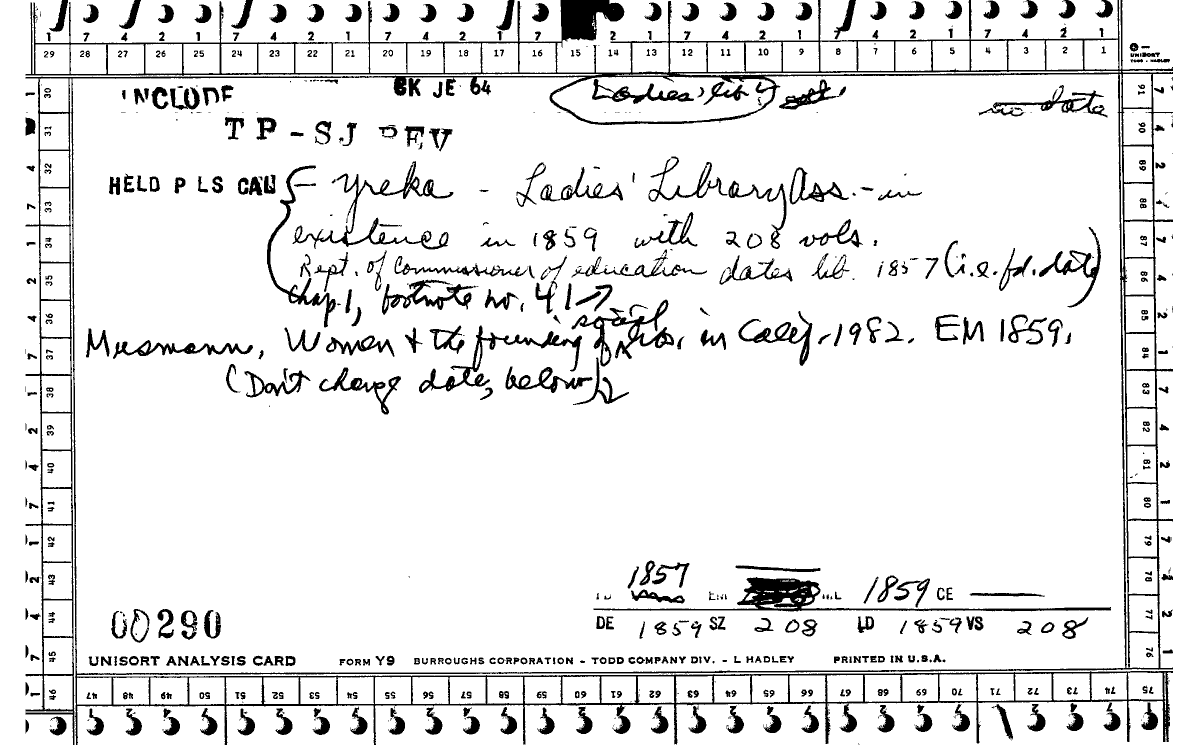 1 7 4 2 1 7 4 2 1 7 4 2 1 7 2 1 7 4 2 1 7 4 2 1 7 4 2 1
29 28 27 26 25 24 23 22 21 20 19 18 17 16 15 14 13 12 11 10 9 8 7 6 5 4 3 2 1
UNISORT
TODD - HADLEY
INCLUDE BK JE 64 Ladies' lib no date
TP-SJ REV
HELD P LS CAU - Yreka - Ladies' Library Ass. - in
existence in 1859 with 208 vols.
Rept. of Commissioner of education dates lib. 1857 (i.e. fd. date)
Chap 1, footnote no. 41 →
social
Musmann, Women & the founding of libs. in Calif. 1982. EM 1859.
(Don't change date, below)
1857
1859 CE
DE 1859 SZ 208 LD 1859 VS 208
00290
UNISORT ANALYSIS CARD FORM Y9 BURROUGHS CORPORATION - TODD COMPANY DIV. - L HADLEY PRINTED IN U.S.A.
30 31 32 33 34 35 36 37 38 39 40 41 42 43 44 45 46
91 90 89 88 87 86 85 84 83 82 81 80 79 78 77 76
47 48 49 50 51 52 53 54 55 56 57 58 59 60 61 62 63 64 65 66 67 68 69 70 71 72 73 74 75